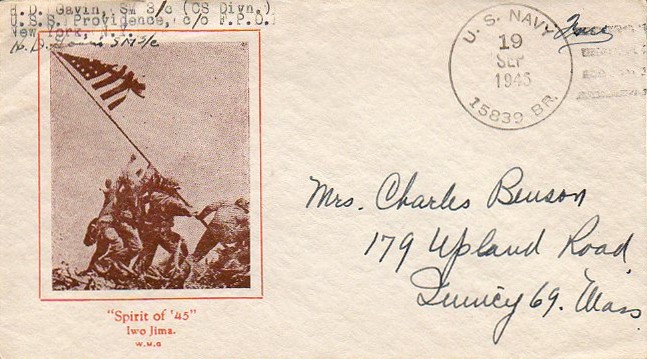 H.D. Gavin, SM 3/c (CS Divn.)
U.S.S. Providence, c/o F.P.O.
New York, N.Y.
H. D. SM3/c
U. S. NAVY
19
SEP
1945
15839 BR.
Mrs. Charles Benson
179 Upland Road
Quincy 69. Mass
"Spirit of '45"
Iwo Jima.
W.M.G